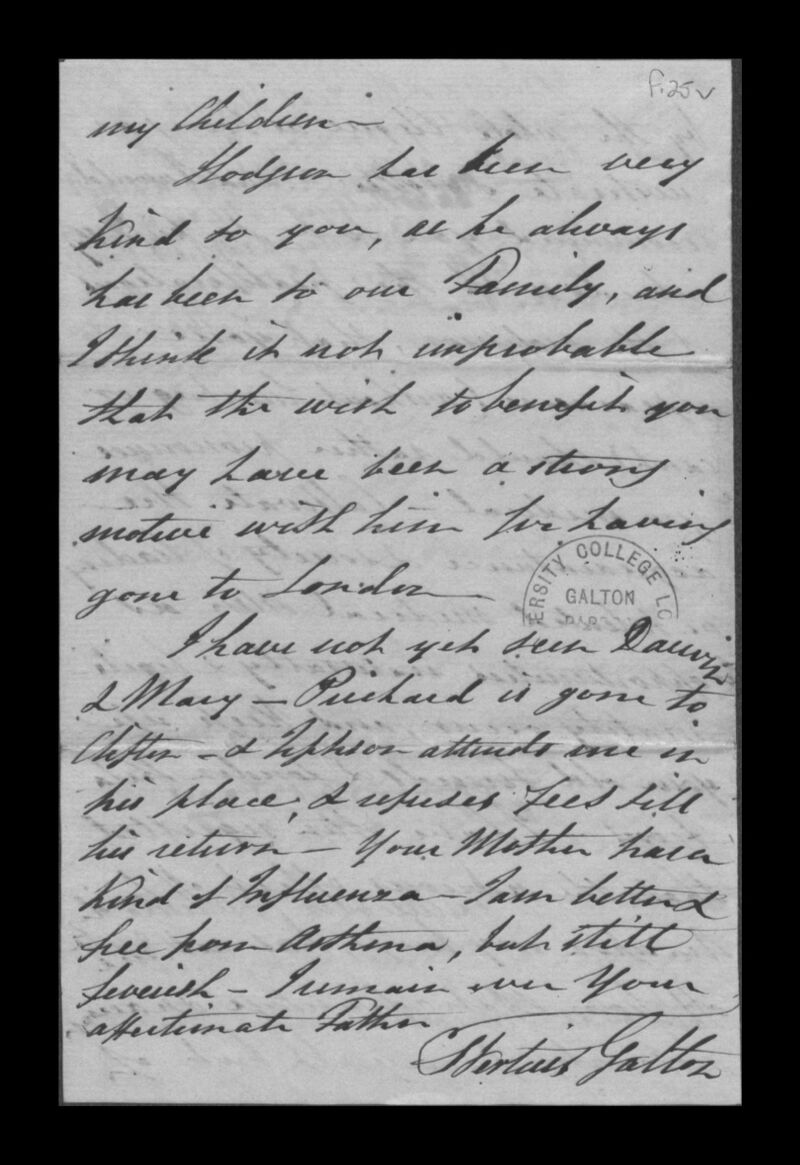 f.25v
my Children –
Hodgson has been very
kind to you, as he always
has been to our Family, and
I think it not improbable
that the wish to benefit you
may have been a strong
motive with him for having
gone to London –
ERSITY COLLEGE LO
GALTON
I have not yet seen Darwin
& Mary – Prichard is gone to
Clifton – & Jephson attends me in
his place, & refuses Fees till
his return – Your Mother has a
kind of Influenza – I am better &
free from Asthma, but still
feverish – I remain ever Your
affectionate Father
S Tertius Galton